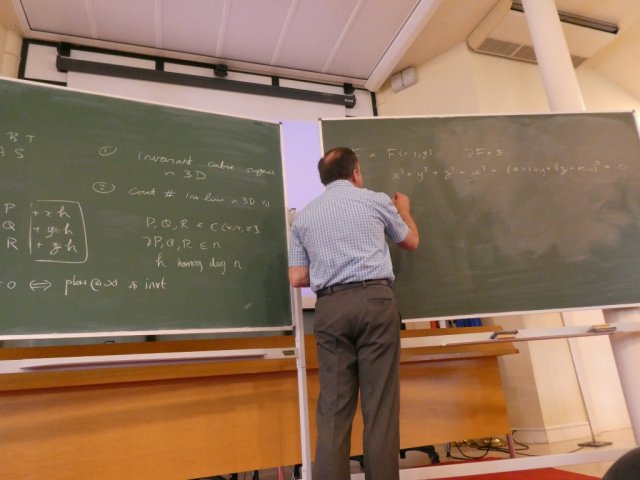 B T
A S
① Invariant cubic surfaces
in 3D
② Count # inv lines in 3D
P + x h
Q + y h
R + z h
P, Q, R ∈ C[x,y,z]
∂P, Q, R ≤ n
h homog deg n
= 0 ⟺ plane @ ∞ is invt
F = F(x,y,z) ∂F = 3
x³ + y³ + z³ +